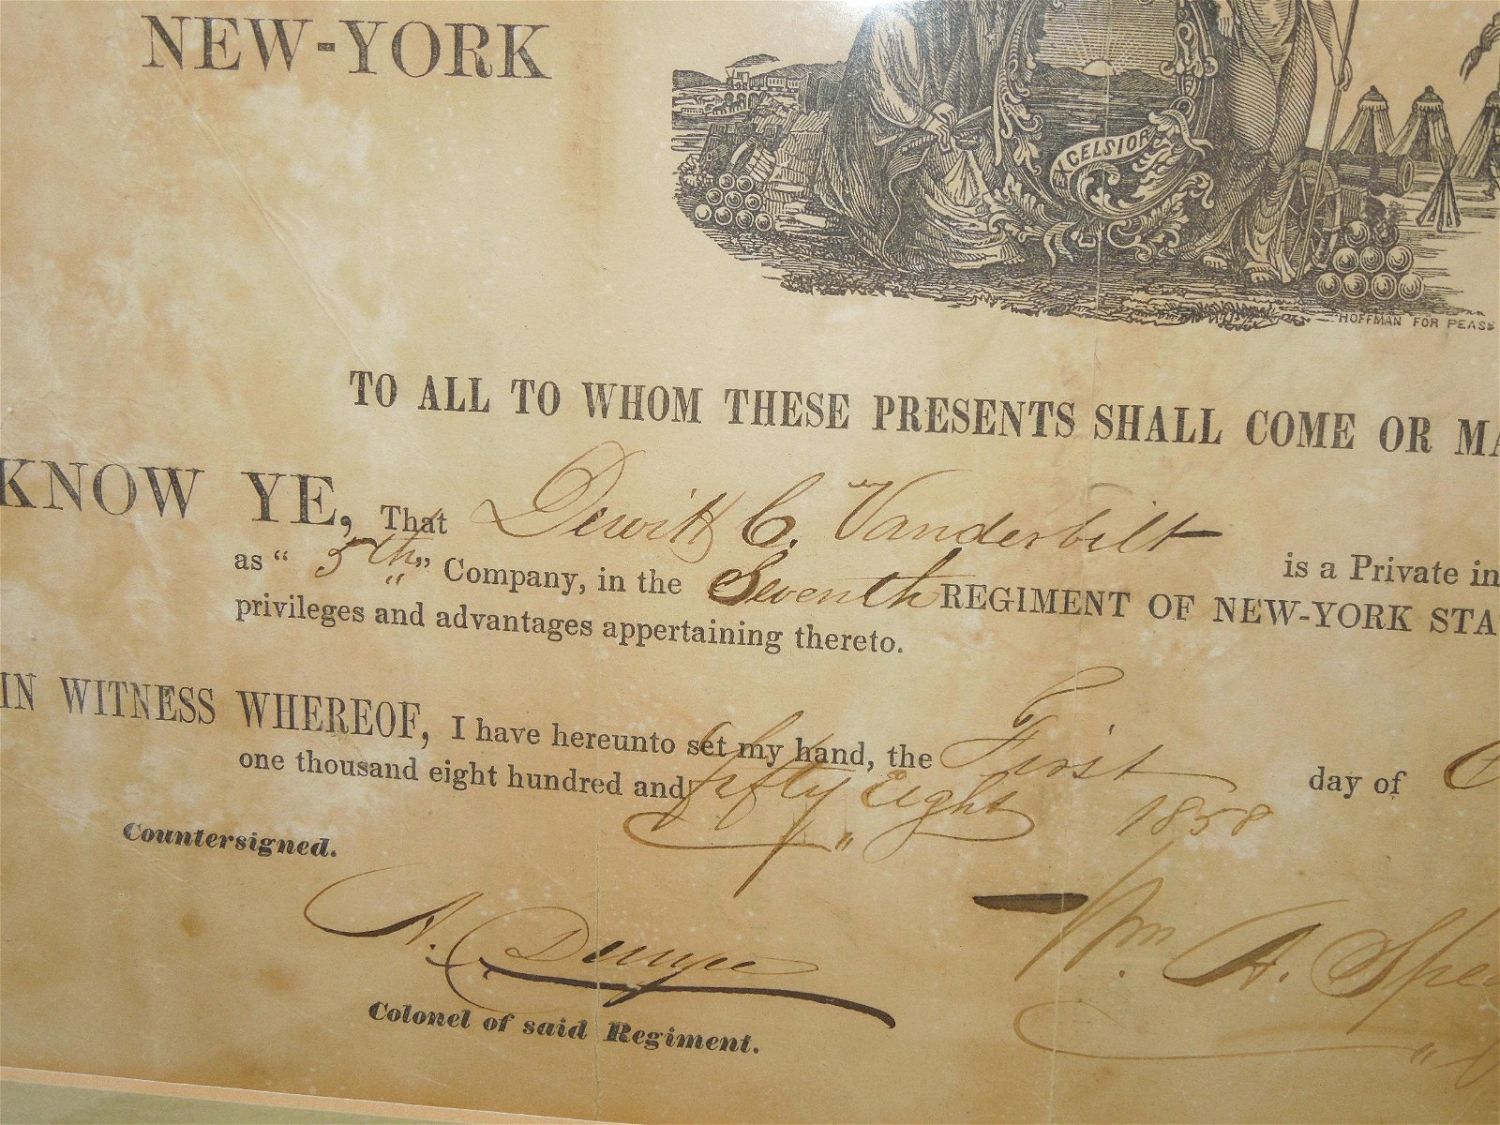 NEW-YORK
XCELSIOR
HOFFMAN FOR PEASE
TO ALL TO WHOM THESE PRESENTS SHALL COME OR MA
KNOW YE, That Dewitt C. Vanderbilt is a Private in
as "5th" Company, in the Seventh REGIMENT OF NEW-YORK STA
privileges and advantages appertaining thereto.
IN WITNESS WHEREOF, I have hereunto set my hand, the First day of
one thousand eight hundred and fifty Eight 1858
Countersigned.
A. Duryee
Wm A. Spe
Colonel of said Regiment.